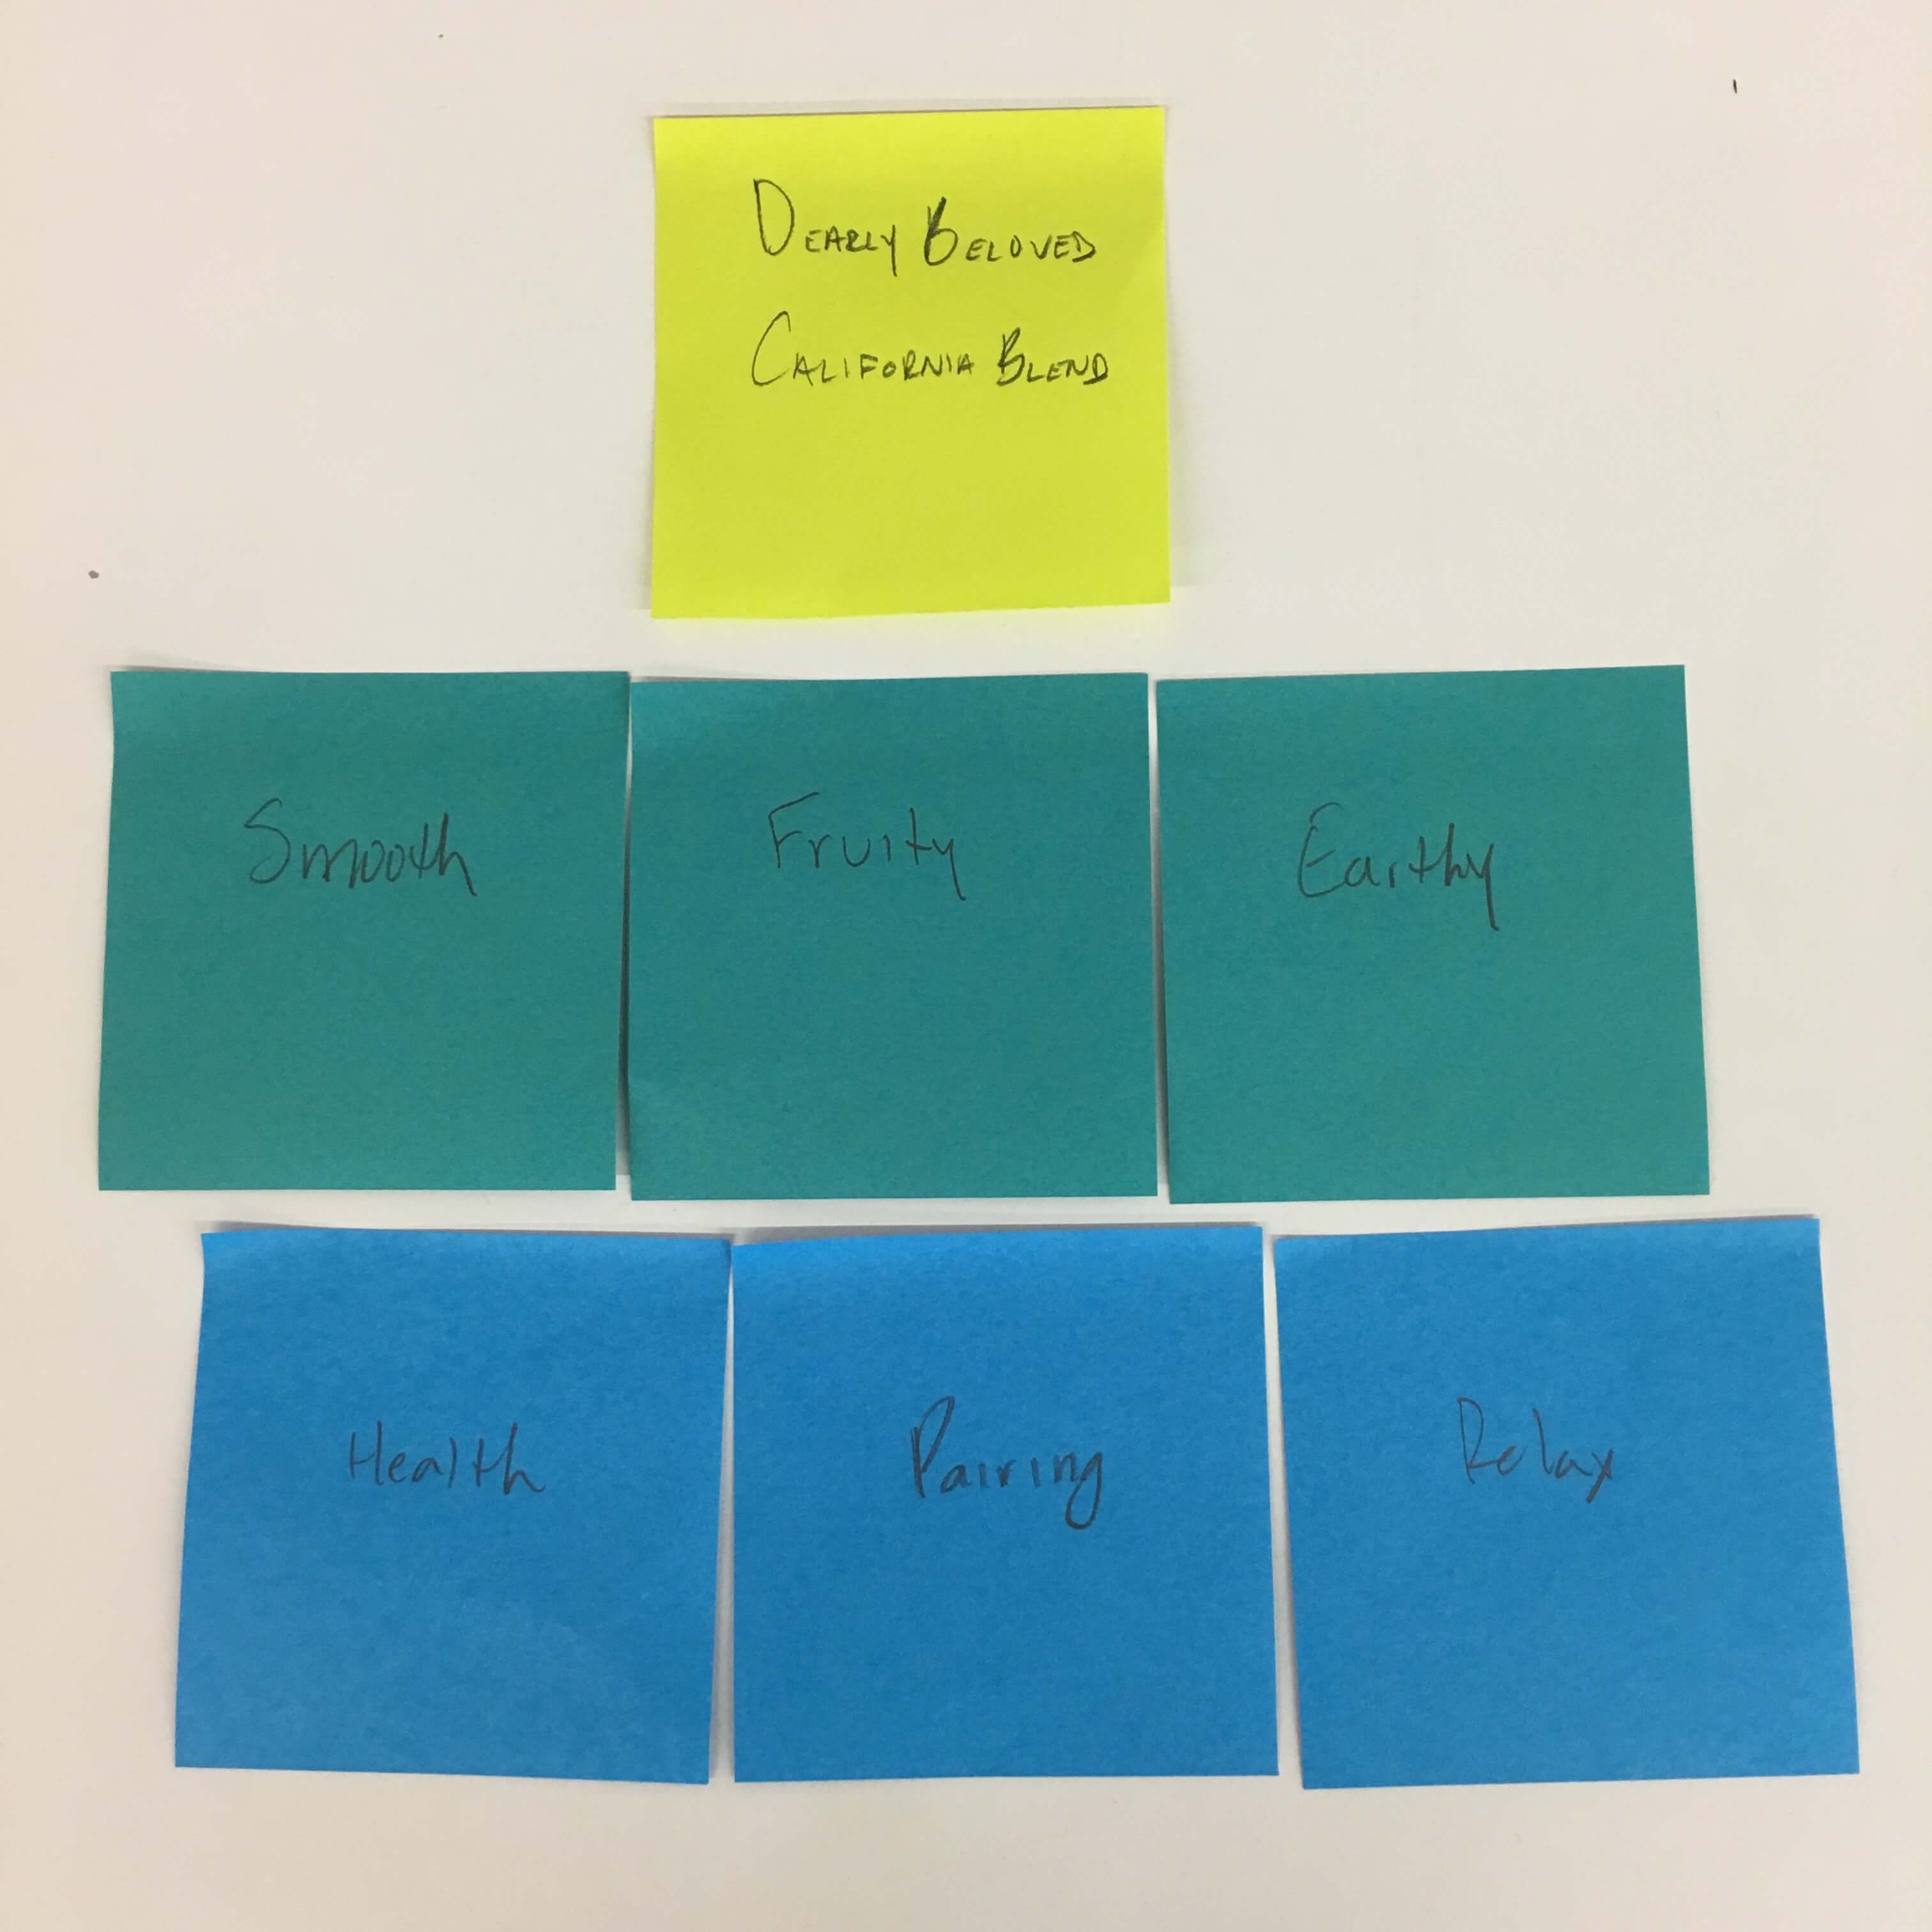 Dearly Beloved
California Blend
Smooth
Fruity
Earthy
Health
Pairing
Relax